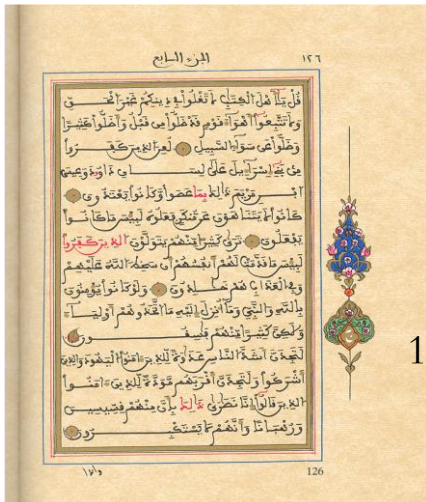 الجزء السابع ١٢٦
قل يأهل الكتب لا تغلوا في دينكم غير الحق
ولا تتبعوا أهواء قوم قد ضلوا من قبل وأضلوا كثيرا
وضلوا عن سواء السبيل لعن الذين كفروا
من بني إسراءيل على لسان داوود وعيسى
ابن مريم ذلك بما عصوا وكانوا يعتدون
كانوا لا يتناهون عن منكر فعلوه لبيس ما كانوا
يفعلون ترى كثيرا منهم يتولون الذين كفروا
لبيس ما قدمت لهم أنفسهم أن سخط الله عليهم
وفي العذاب هم خلدون ولو كانوا يؤمنون
بالله والنبي وما أنزل إليه ما اتخذوهم أولياء
ولكن كثيرا منهم فسقون
لتجدن أشد الناس عداوة للذين ءامنوا اليهود والذين
أشركوا ولتجدن أقربهم مودة للذين ءامنوا
الذين قالوا إنا نصارى ذلك بأن منهم قسيسين
ورهبانا وأنهم لا يستكبرون
1
وإذا
126